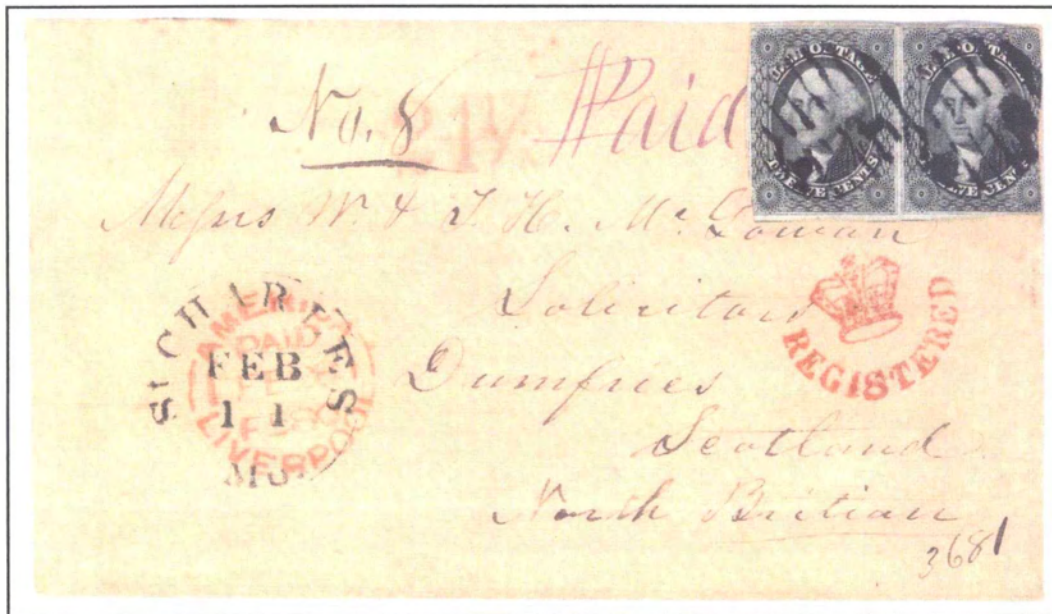 No. 8 Paid
U.S. POSTAGE
TWELVE CENTS
U.S. POSTAGE
TWELVE CENTS
Messrs W. & T. H. McGowan
Solicitors
Dumfries
Scotland
North Britian
3681
REGISTERED
St CHARLES
FEB
11
MO.
AMERICA
PAID
LIVERPOOL